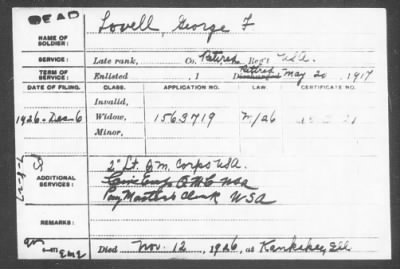 DEAD
NAME OF SOLDIER: Lovell, George F
SERVICE: Late rank, Co. Retired Reg't USA.
TERM OF SERVICE: Enlisted , 1 Retired Discharged May 20, 1917
DATE OF FILING. CLASS. APPLICATION NO. LAW. CERTIFICATE NO.
Invalid,
1926-Dec-6 Widow, 1563719 M/26
Minor,
ADDITIONAL SERVICES: 2" Lt. Q.M. Corps USA.
Q M C USA
Pay Master's Clerk USA
REMARKS:
Died Nov. 12, 1926, at Kankakee, Ill